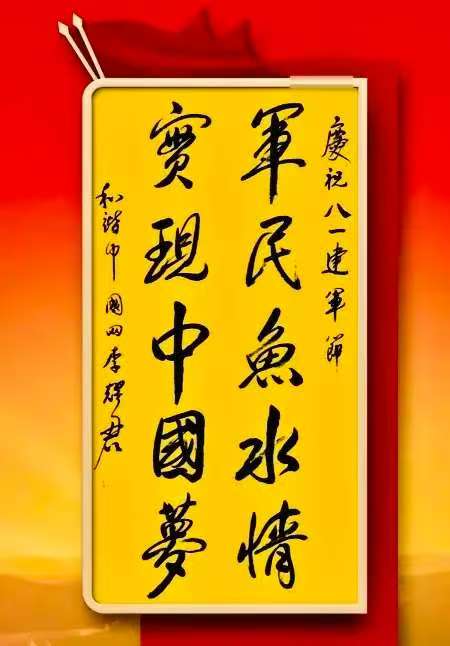 慶祝八一建軍節
軍民魚水情
實現中國夢
和諧中國四李耀君